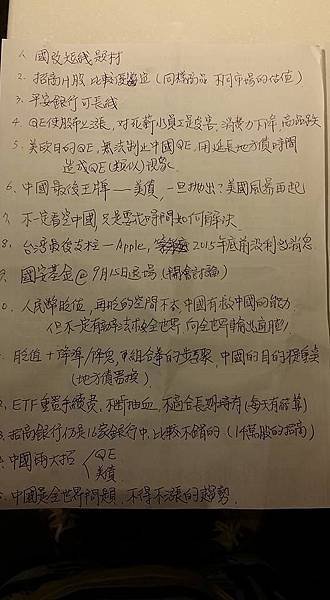 1. 國改短綫題材
2. 招商H股比較便宜(同樣商品 不同市場的估值)
3. 平安銀行可長綫
4. QE使股市上漲,對死薪水員工是災害,消費力下降,商品跌
5. 美歐日的QE,無法制止中國QE,用延長地方債時間
造成QE(類似)現象
6. 中國最後王牌——美債,一旦拋出?美國風暴再起
7. 不一定看空中國,只是需花時間如何解決
8. 台灣最後支柱—Apple, 2015年底前沒利多消息
9. 國安基金@9月15日退場(開會討論)
0. 人民幣貶值,再貶的空間不大,中國有救中國的能力
但不一定有辦法救全世界,向全世界輸出通膨
貶值+降準/降息,系組合拳的步驟,中國的目的很單純
(地方債置換)
2. ETF重置手續費,不斷抽血,不適合長期擁有(每天有結算)
3. 招商銀行仍是16家銀行中,比較不錯的(1千萬股的招商)
中國兩大招 QE
美債
中國是全世界問題,不得不漲的趨勢